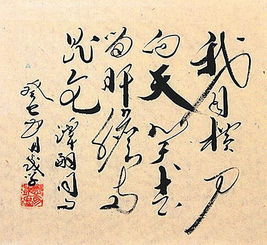 我自横刀
向天笑去
留肝胆两
昆仑
谭嗣同句
癸七